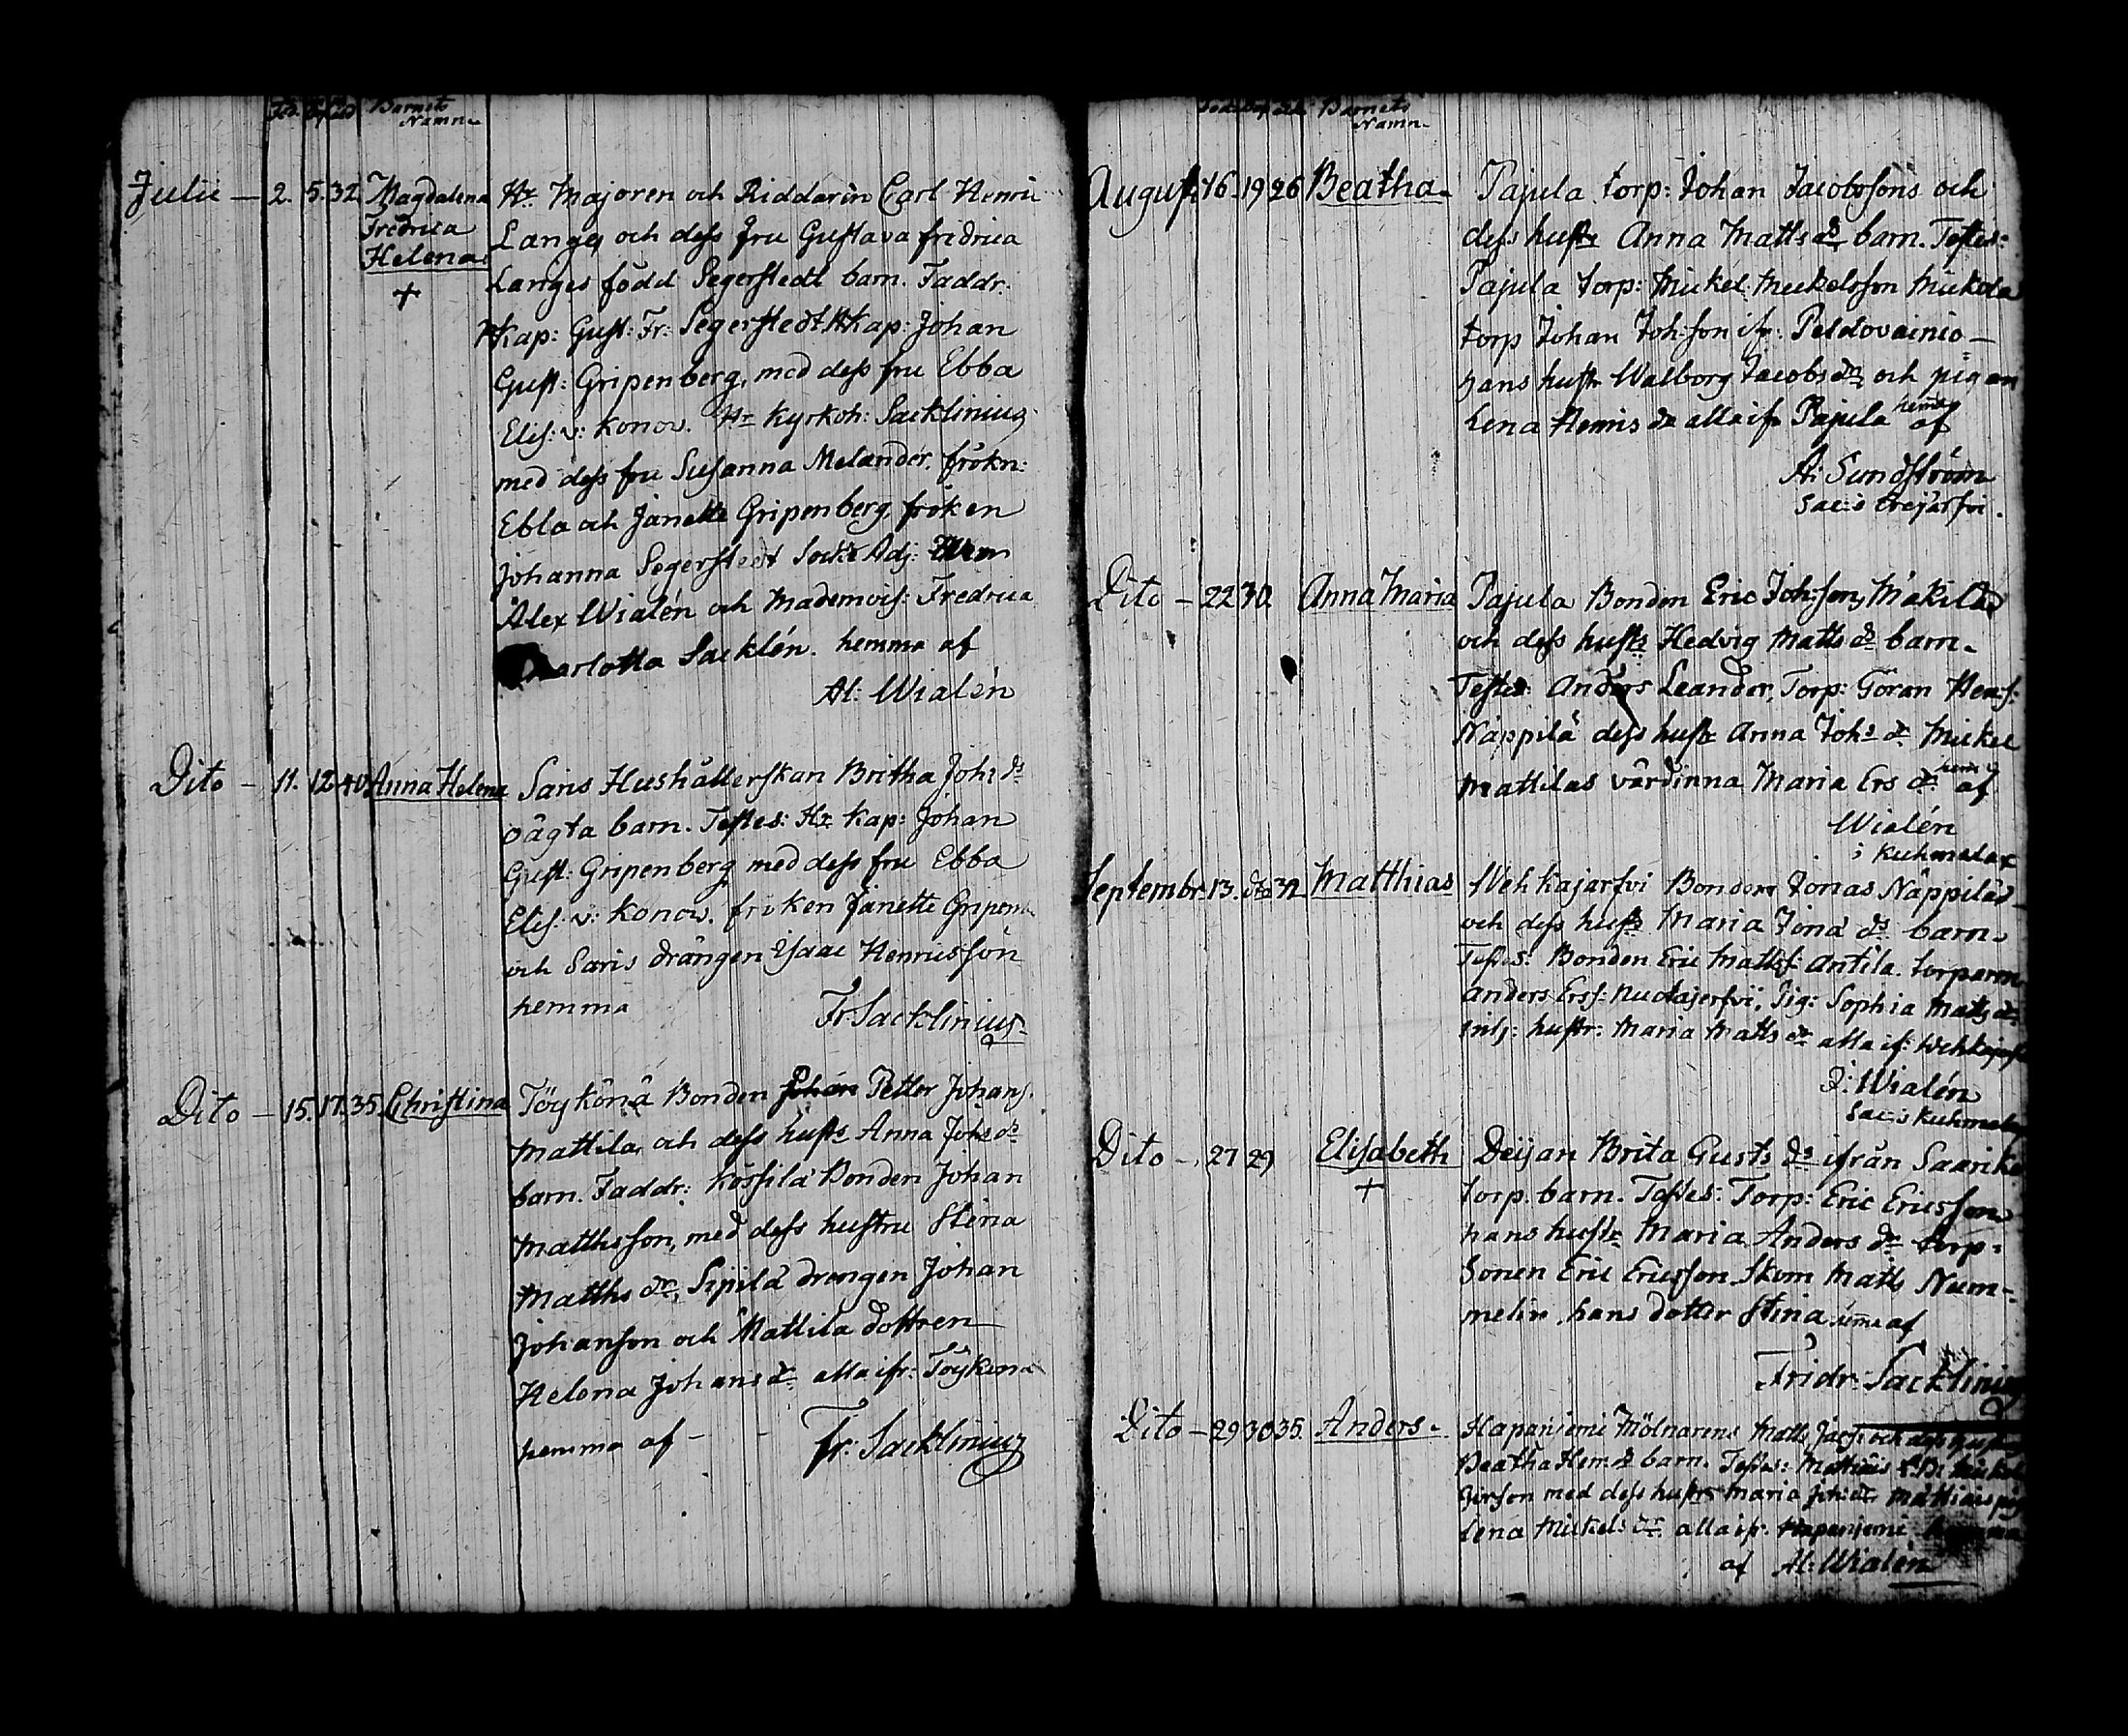 Barnets
Namn
Julii — 2. 5. 32. Magdalena
Fredrica
Helena
+
Hr Majoren och Riddaren Carl Henric
Lange, och dess fru Gustava fredrica
Langes född Segerstedt barn. Faddr:
Kap: Gust: Fr: Segerstedt Hr Kap: Johan
Gust: Gripenberg, med dess fru Ebba
Elis: v: Konow. Hr Kyrkoh: Sacklinius
med dess fru Susanna Melander. frökn:
Ebba och Janette Gripenberg, fröken
Johanna Segerstedt Sock: Adj:
Alex Wialén och Mademois: Fredrica
Charlotta Sacklén. hemma af
Al: Wialén
Dito — 11. 12 40 Anna Helena
Saris Hushållerskan Britha Johs dr
oägta barn. Testes: Hr Kap: Johan
Gust: Gripenberg med dess fru Ebba
Elis: v: Konow. fröken Janette Gripenb
och Saris drängen Isaac Henricsson
hemma
Fr Sacklinius
Dito — 15. 17. 35. Christina
Töykönä Bonden Petter Johans.
Mattila, och dess hustr Anna Johs dr
barn. Faddr: Kössilä Bonden Johan
Matthsson, med dess hustru Stina
Matths dr, Sipilä drengen Johan
Johanson och Mattila dottren
Helena Johans dr alla ifr: Töykenä
hemma af —
Fr: Sacklinius
Barnets
Namn
August: 16 — 19 26 Beatha
Pajula torp: Johan Jacobssons och
dess hustr Anna Matts dr barn. Testes:
Pajula torp: Mickel Mickelsson Mickola
torp Johan Joh:son ifr: Peldovainio —
hans hustr Walborg Jacobs dr och pigan
Lena Henris dr alla ifr Pajula hemma af
A: Sundström
Sac: i Ereijärfvi.
Dito — 22 30 Anna Maria
Pajula Bonden Eric Joh:sons Mäkiläs
och dess hustr Hedvig Matts dr barn.
Testes: Anders Leander, Torp: Göran Hens:
Näppilä dess hustr Anna Johs dr Mickel
Mattilas värdinna Maria Ers dr hema af
Wialén
i Kuhmalax
Septembr: 13. dito 32 Matthias
Wehkajärfvi Bonden Jonas Näppiläs
och dess hustr Maria Jona dr barn.
Testes: Bonden Eric Mattss: Antila. torparen
Anders Erss: Nuotajerfvi, Pig: Sophia Matts dr
inh: hustr: Maria Matts dr alla if: Wehkajerf
J: Wialén
Sac: i Kuhmalax
Dito — 27 29 Elisabeth
+
Deijan Brita Gusts dr ifrån Saarike
torp. barn. Testes: Torp: Eric Ericsson
hans hustr Maria Anders dr torp:
Sonen Eric Ericsson Skom Matts Num-
melin hans dotter Stina hemma af
Fridr: Sacklinius
Dito — 29 30 35. Anders
Hapaniemi Mölnarens Matts Jacs: och dess hustr
Beatha Hen: dr barn. Testes: Mattiais
Jörson med dess hustr Maria Joh: dr Mattiais pig
Lena Mickels dr alla ifr: Hapaniemi
af Al: Wialén